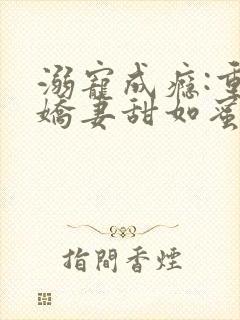 溺寵成癮:重
嬌妻甜如蜜
指間香煙